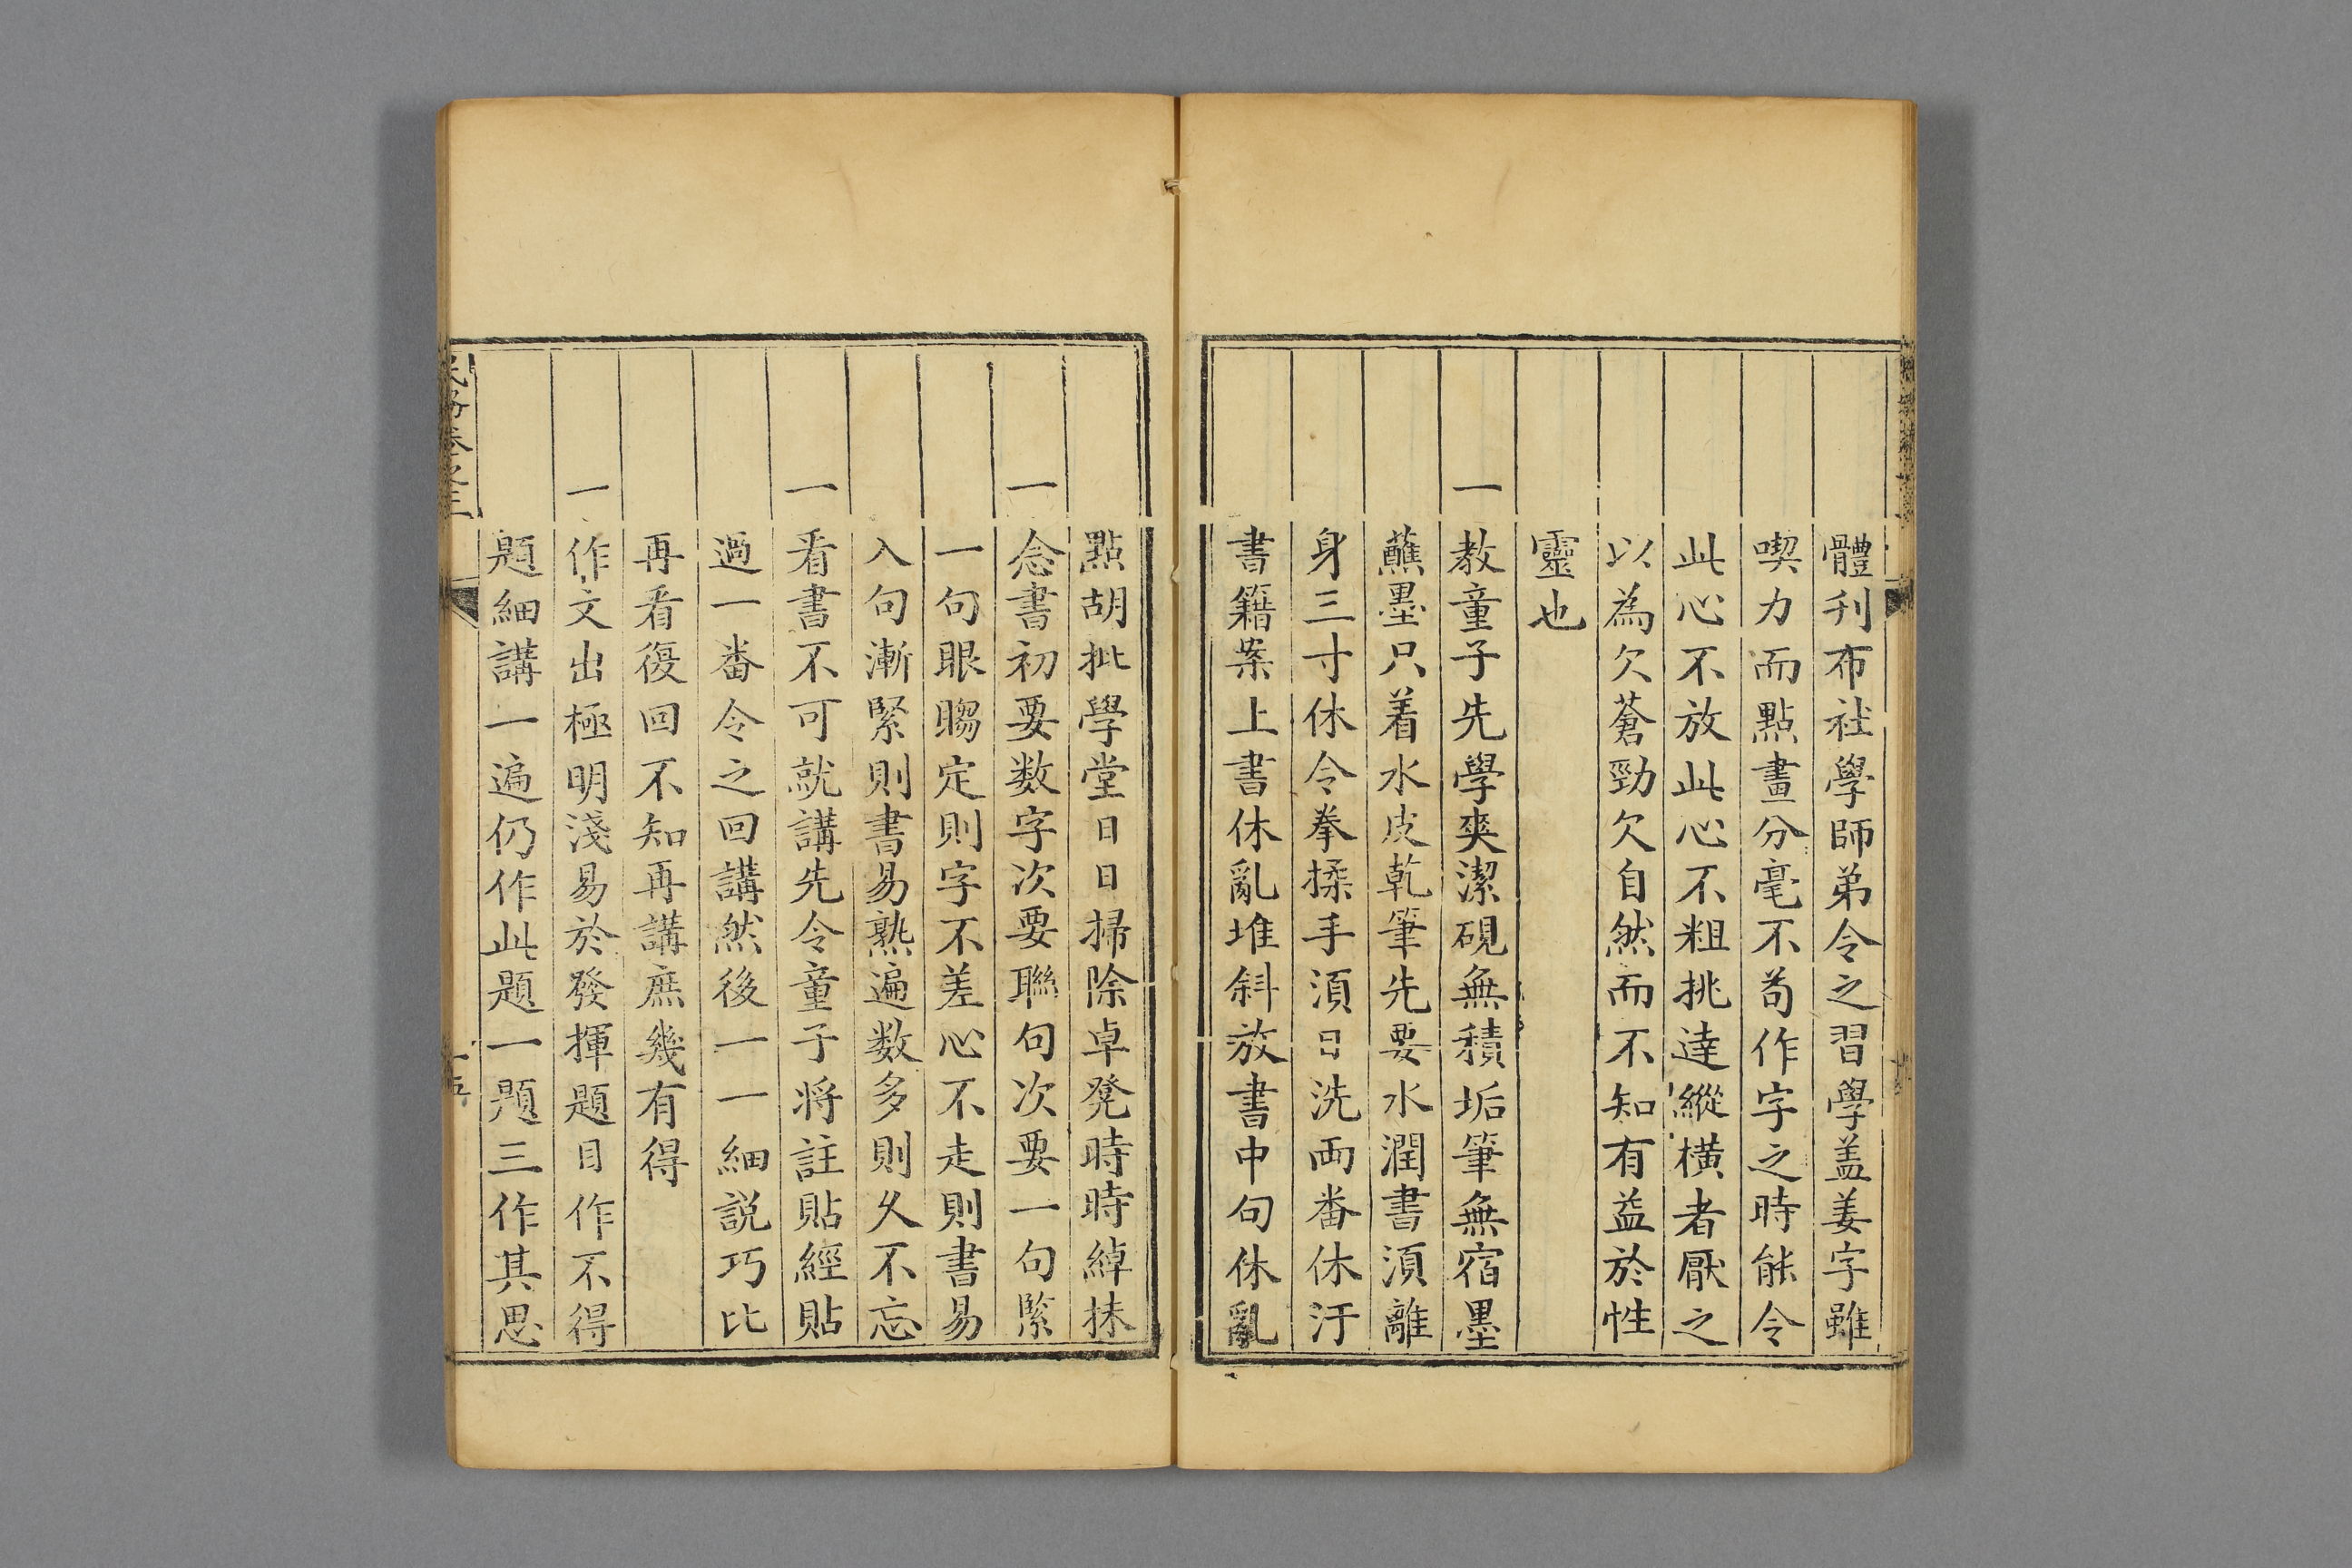 體刋布社學師弟令之習學盖姜字雖
喫力而點畫分毫不苟作字之時能令
此心不放此心不粗挑達縱橫者厭之
以為欠蒼勁欠自然而不知有益於性
靈也
一教童子先學爽潔硯無積垢筆無宿墨
蘸墨只着水皮乾筆先要水潤書湏離
身三寸休令拳揉手湏日洗兩番休汙
書籍案上書休亂堆斜放書中句休亂
點胡批學堂日日掃除卓凳時時綽抹
一念書初要数字次要聯句次要一句緊
一句眼睗定則字不差心不走則書易
入句漸緊則書易熟遍数多則久不忘
一看書不可就講先令童子将註貼經貼
過一番令之回講然後一一細説巧比
再看復回不知再講庶幾有得
一作文出極明淺易於發揮題目作不得
題細講一遍仍作此題一題三作其思
民務卷之三